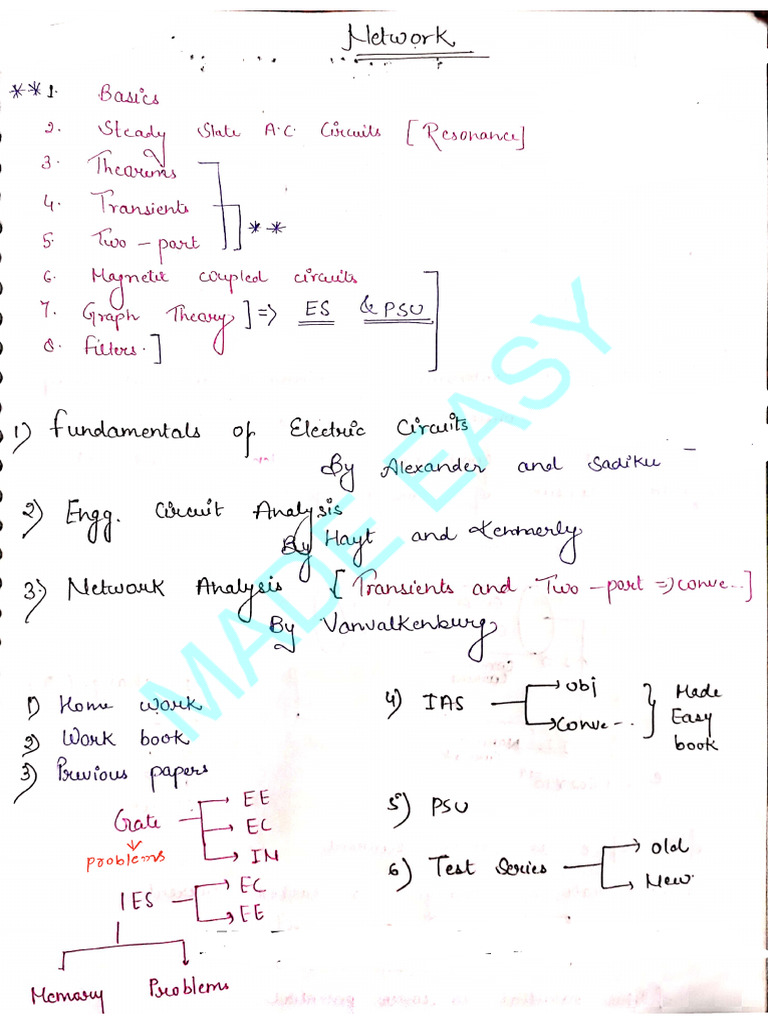 Network
**1. Basics
2. Steady State A.C. Circuits [Resonance]
3. Thearums
4. Transients
5. Two - part
**
6. Magnetic coupled circuits
7. Graph Theory ] => ES & PSU
8. Filters. ]
1) Fundamentals of Electric Circuits
By Alexander and Sadiku
2) Engg. Circuit Analysis
By Hayt and Kemmerly
3) Network Analysis [Transients and Two - part => conve..]
By Vanvalkenburg
MADE EASY
1) Home work
2) Work book
3) Previous papers
Gate
EE
EC
IN
problems
IES
EC
EE
Memory Problems
4) IAS
obj
conve -.
Made
Easy
book
5) PSU
6) Test Series
old
New.